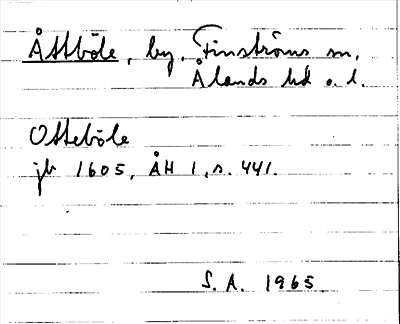 Åttböle, by, Finströms sn,
Ålands hd o. l.
Otteböle
jb 1605, ÅH 1, s. 441.
S. A. 1965